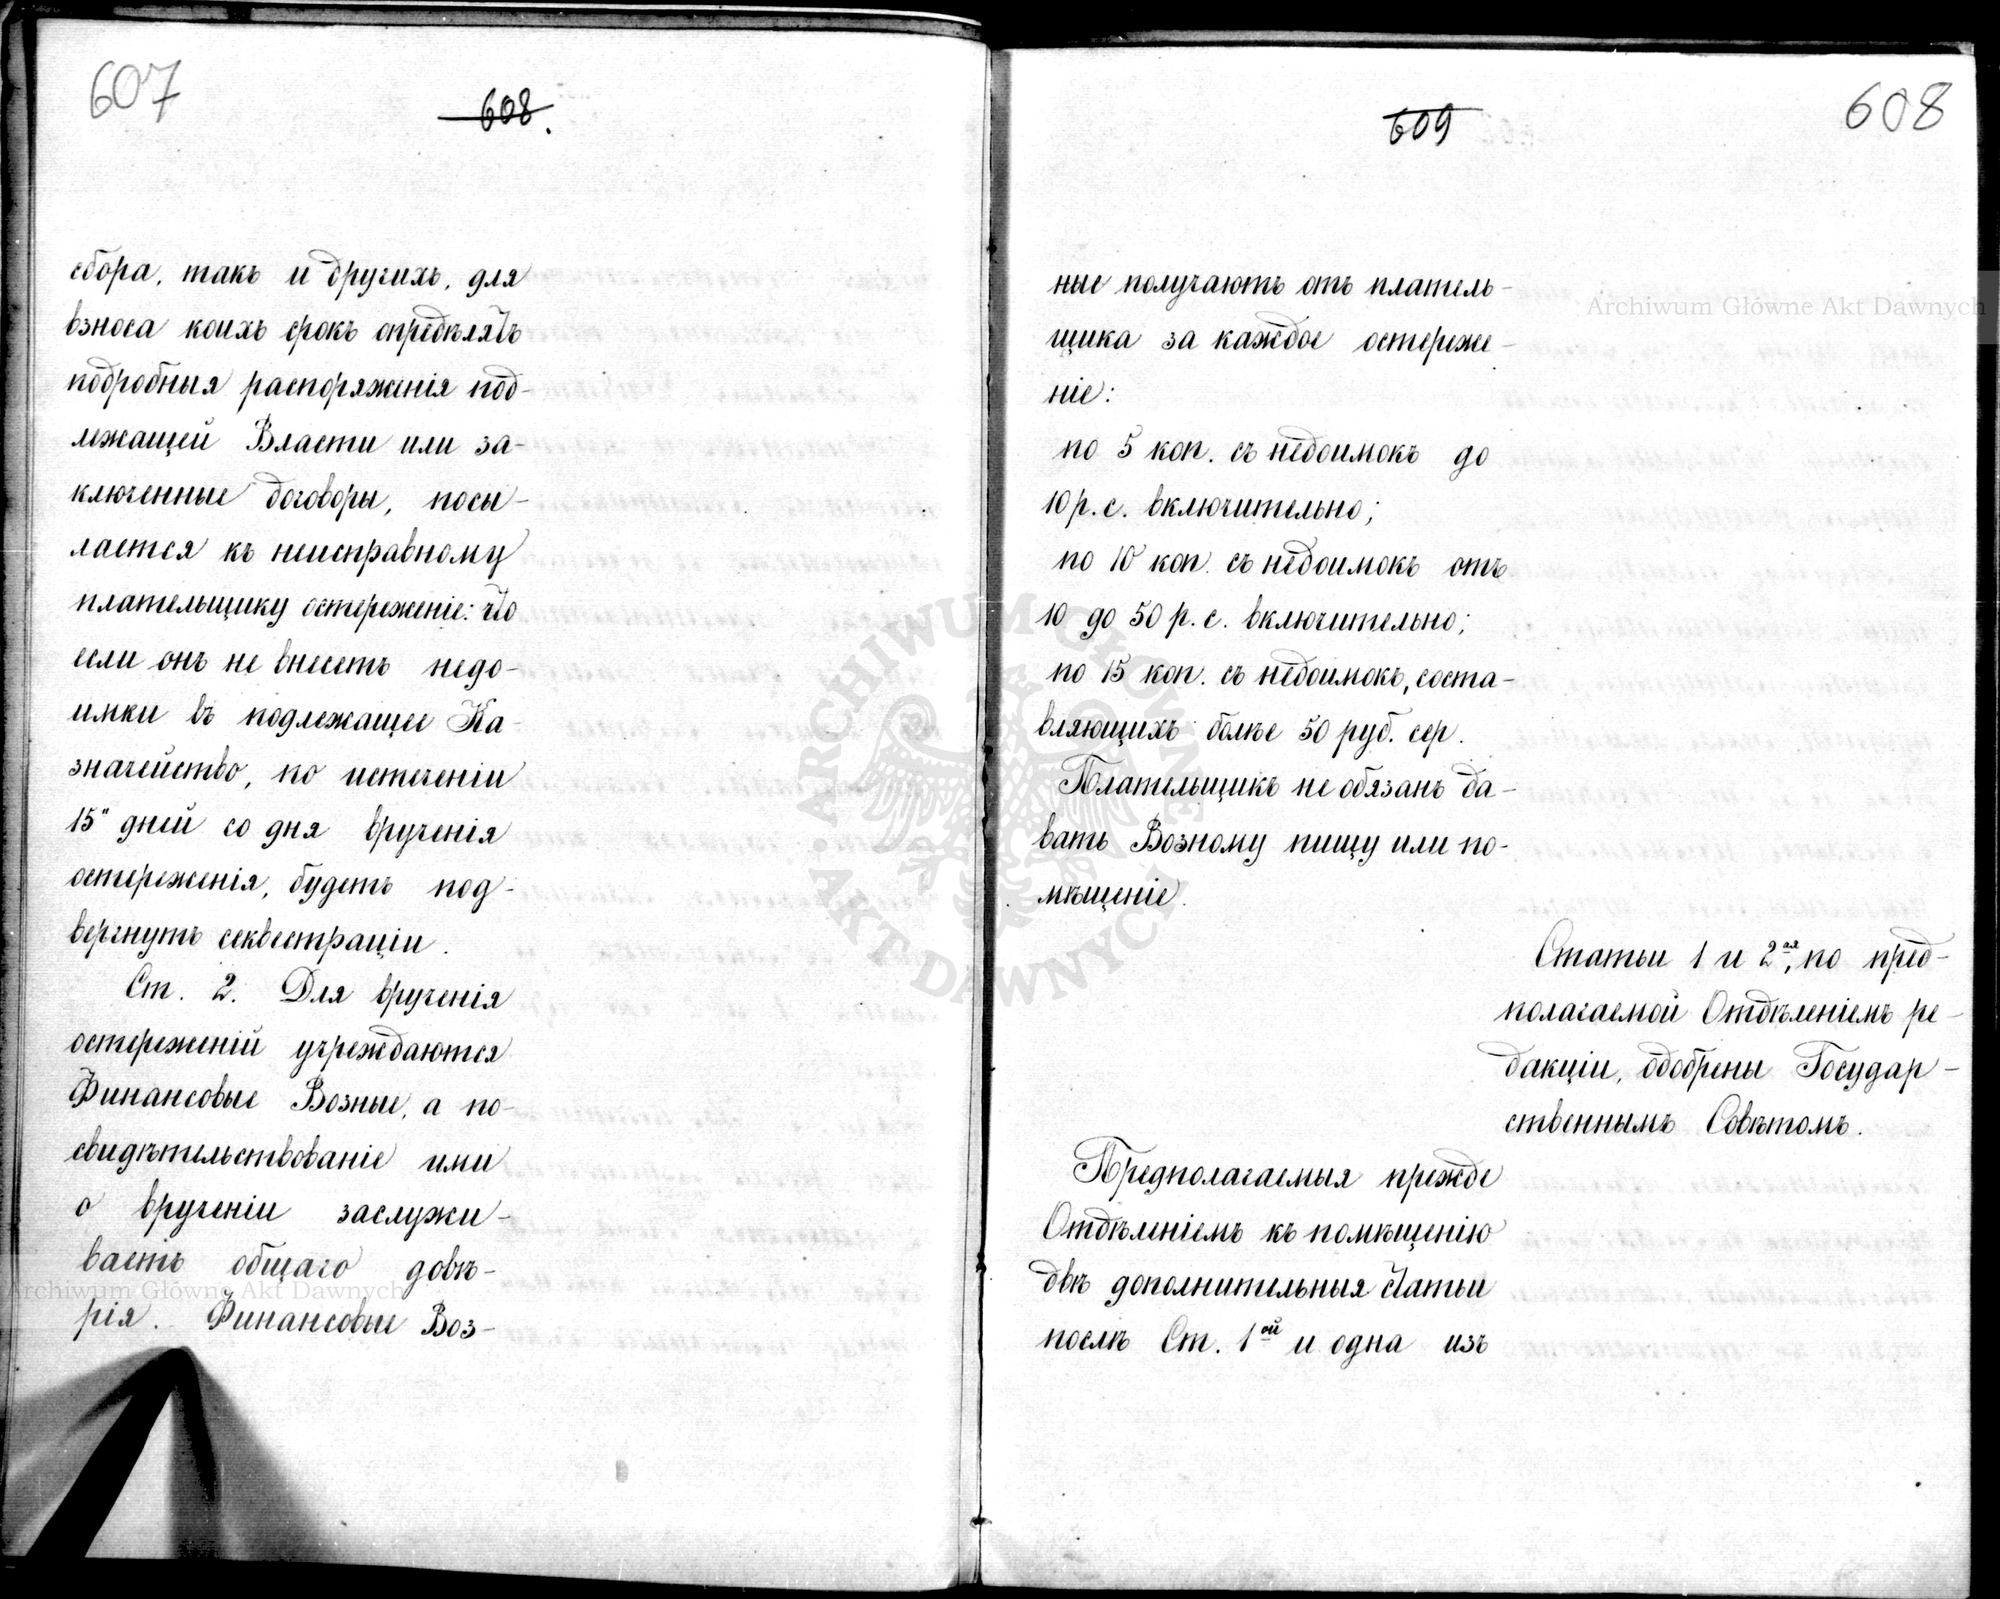 607
608.
сбора, такъ и другихъ, для
взноса коихъ срокъ опредѣлятъ
подробныя распоряженія под-
лежащей Власти или за-
ключенные договоры, посы-
лается къ неисправному
плательщику остереженіе: что
если онъ не внесетъ недо-
имки въ подлежащее Ка-
значейство, по истеченіи
15" дней со дня врученія
остереженія, будетъ под-
вергнутъ секвестраціи.
Ст. 2. Для врученія
остереженій учреждаются
Финансовые Возные, а по-
свидѣтельствованіе ими
о врученіи заслужи-
ваетъ общаго довѣ-
рія. Финансовые Воз-
609
608
ные получаютъ отъ платель-
щика за каждое остереже-
ніе:
по 5 коп. съ недоимокъ до
10 р. с. включительно;
по 10 коп. съ недоимокъ отъ
10 до 50 р. с. включительно;
по 15 коп. съ недоимокъ, соста-
вляющихъ болѣе 50 руб. сер.
Плательщикъ не обязанъ да-
вать Возному пищу или по-
мѣщеніе.
Статьи 1 и 2ая, по пред-
полагаемой Отдѣленіемъ ре-
дакціи, одобрены Государ-
ственнымъ Совѣтомъ.
Предполагаемыя прежде
Отдѣленіемъ къ помѣщенію
двѣ дополнительныя статьи
послѣ Ст. 1ой и одна изъ
Archiwum Główne Akt Dawnych
Archiwum Główne Akt Dawnych
ARCHIWUM GŁÓWNE
AKT DAWNYCH